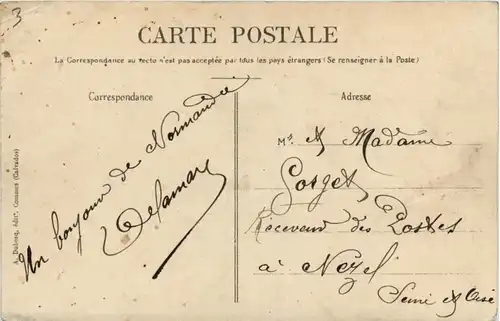 3
CARTE POSTALE
La Correspondance au recto n'est pas acceptée par tous les pays étrangers (Se renseigner à la Poste)
Correspondance
Un bonjour de Normandie
Delamare
Adresse
Mr & Madame
Gosget
Receveur des Postes
à Nézel
Seine & Oise